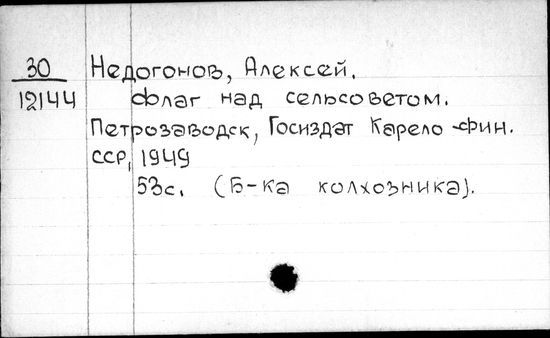 30
12144
Недогонов, Алексей.
Флаг над сельсоветом.
Петрозаводск, Госиздат Карело-Фин.
ССР, 1949
53с. (Б-ка колхозника).